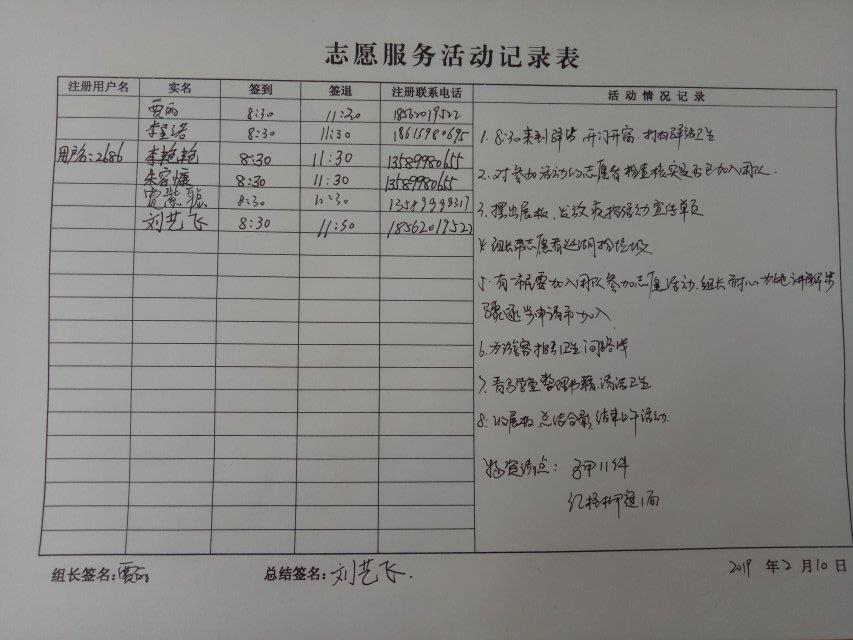 志愿服务活动记录表
注册用户名 实名 签到 签退 注册联系电话 活动情况记录
贾丽 8:30 11:30 18562019522
8:30 11:30 18615980695
用户名:2686 李艳艳 8:30 11:30 13589980655
朱容慷 8:30 11:30 13589980655
贾紫 8:30 11:30
刘艺飞 8:30 11:50 18562019522
1. 8:30来到驿站 开门开窗 打扫驿站卫生
2. 对参加活动的志愿者 检查核实是否已加入团队.
3. 摆出展板,发放 活动宣传单页
4. 组长带志愿者巡湖捡垃圾
5. 有一市民要加入团队参加志愿活动.组长耐心为他讲解步
骤逐步申请 加入
6. 为游客指引卫生间路线
7. 青子学堂整理书籍.清洁卫生
8. 收展板 总结合影,结束上午活动.
物资清点: 马甲11件
红 1面
组长签名: 贾丽 总结签名: 刘艺飞.
2019 年 2 月 10 日